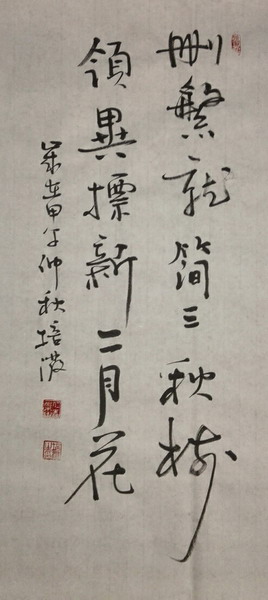 删繁就简三秋树
領異標新二月花
歲在甲午仲秋培